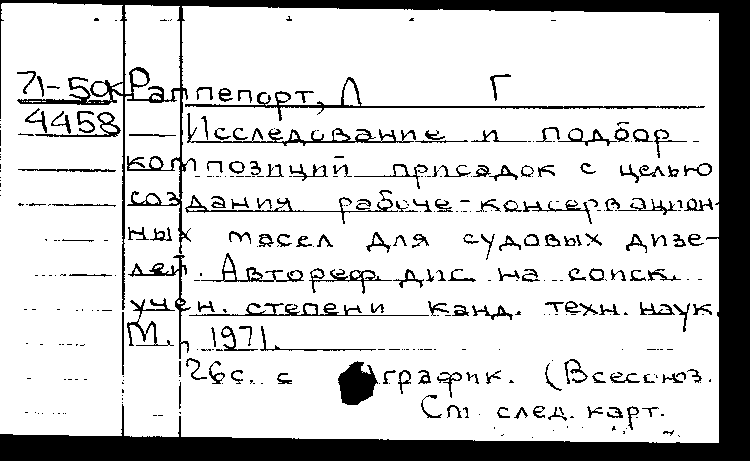 71-50к Раппепорт, Л Г
4458 Исследование и подбор
композиций присадок с целью
создания рабоче-консервацион-
ных масел для судовых дизе-
лей. Автореф. дис. на соиск.
учен. степени канд. техн. наук.
М., 1971.
26с. с график. (Всесоюз.
См. след. карт.